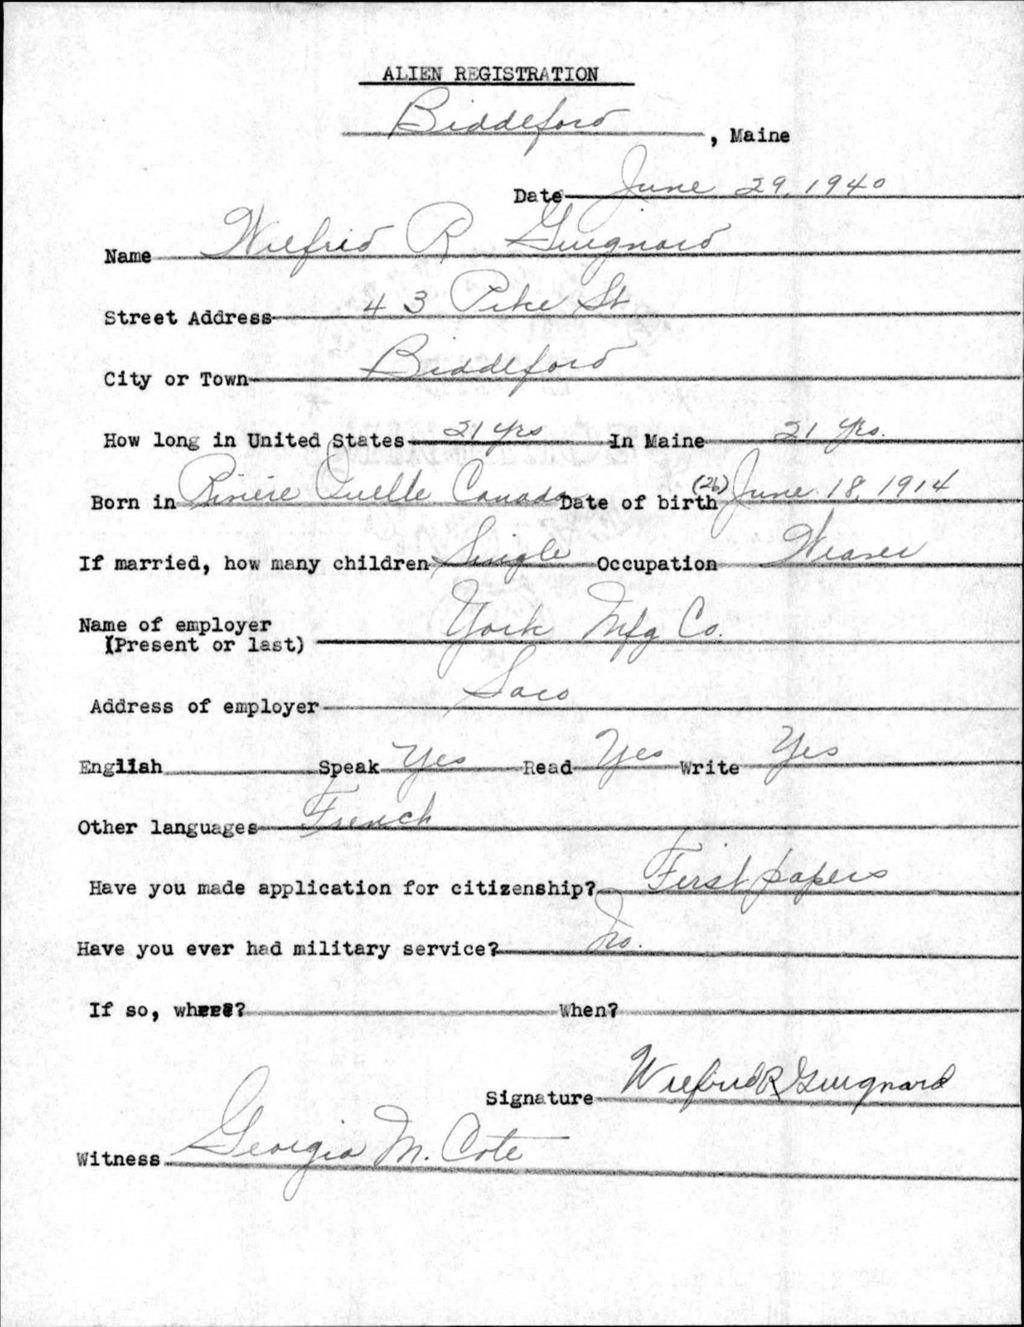 ALIEN REGISTRATION
Biddeford, Maine
Date June 29, 1940
Name Wilfrid R Guignard
Street Address 43 Pike St
City or Town Biddeford
How long in United States 21 yrs In Maine 21 Yrs.
Born in Riviere Ouelle Canada Date of birth (26) June 18, 1914
If married, how many children Single Occupation Weaver
Name of employer York Mfg Co.
(Present or last)
Address of employer Saco
English Speak Yes Read Yes Write Yes
Other languages French
Have you made application for citizenship? First papers
Have you ever had military service? No.
If so, where? When?
Signature Wilfrid R Guignard
Witness Georgia M. Cote